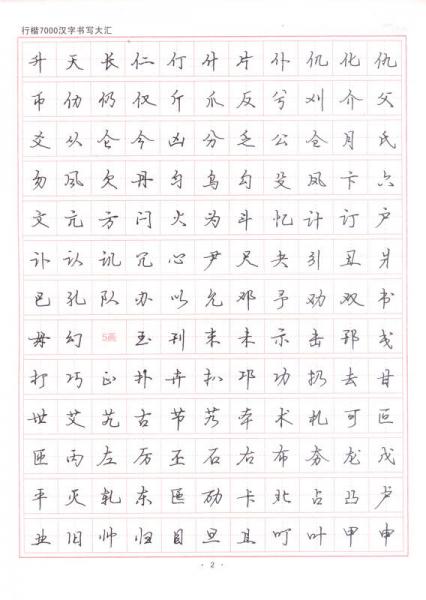 行楷7000汉字书写大汇
升 天 长 仁 仃 什 片 仆 仉 化 仇
币 仂 仍 仅 斤 爪 反 兮 刈 介 父
爻 从 仑 今 凶 分 乏 公 仓 月 氏
勿 风 欠 丹 匀 乌 勾 殳 凤 卞 六
文 亢 方 闩 火 为 斗 忆 计 订 户
讣 认 讥 冗 心 尹 尺 夬 引 丑 爿
巴 孔 队 办 以 允 邓 予 劝 双 书
毋 幻 5画 玉 刊 末 未 示 击 邗 戋
打 巧 正 扑 卉 扒 邛 功 扔 去 甘
世 艾 艽 古 节 艿 本 术 札 可 叵
匝 丙 左 厉 丕 石 右 布 夯 龙 戊
平 灭 轧 东 匜 劢 卡 北 占 凸 卢
业 旧 帅 归 目 旦 且 叮 叶 甲 申
· 2 ·